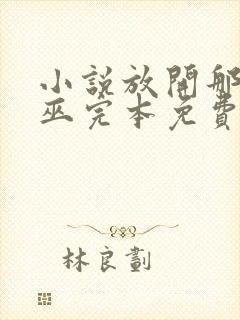 小說放開那
巫完本免費
林良劃